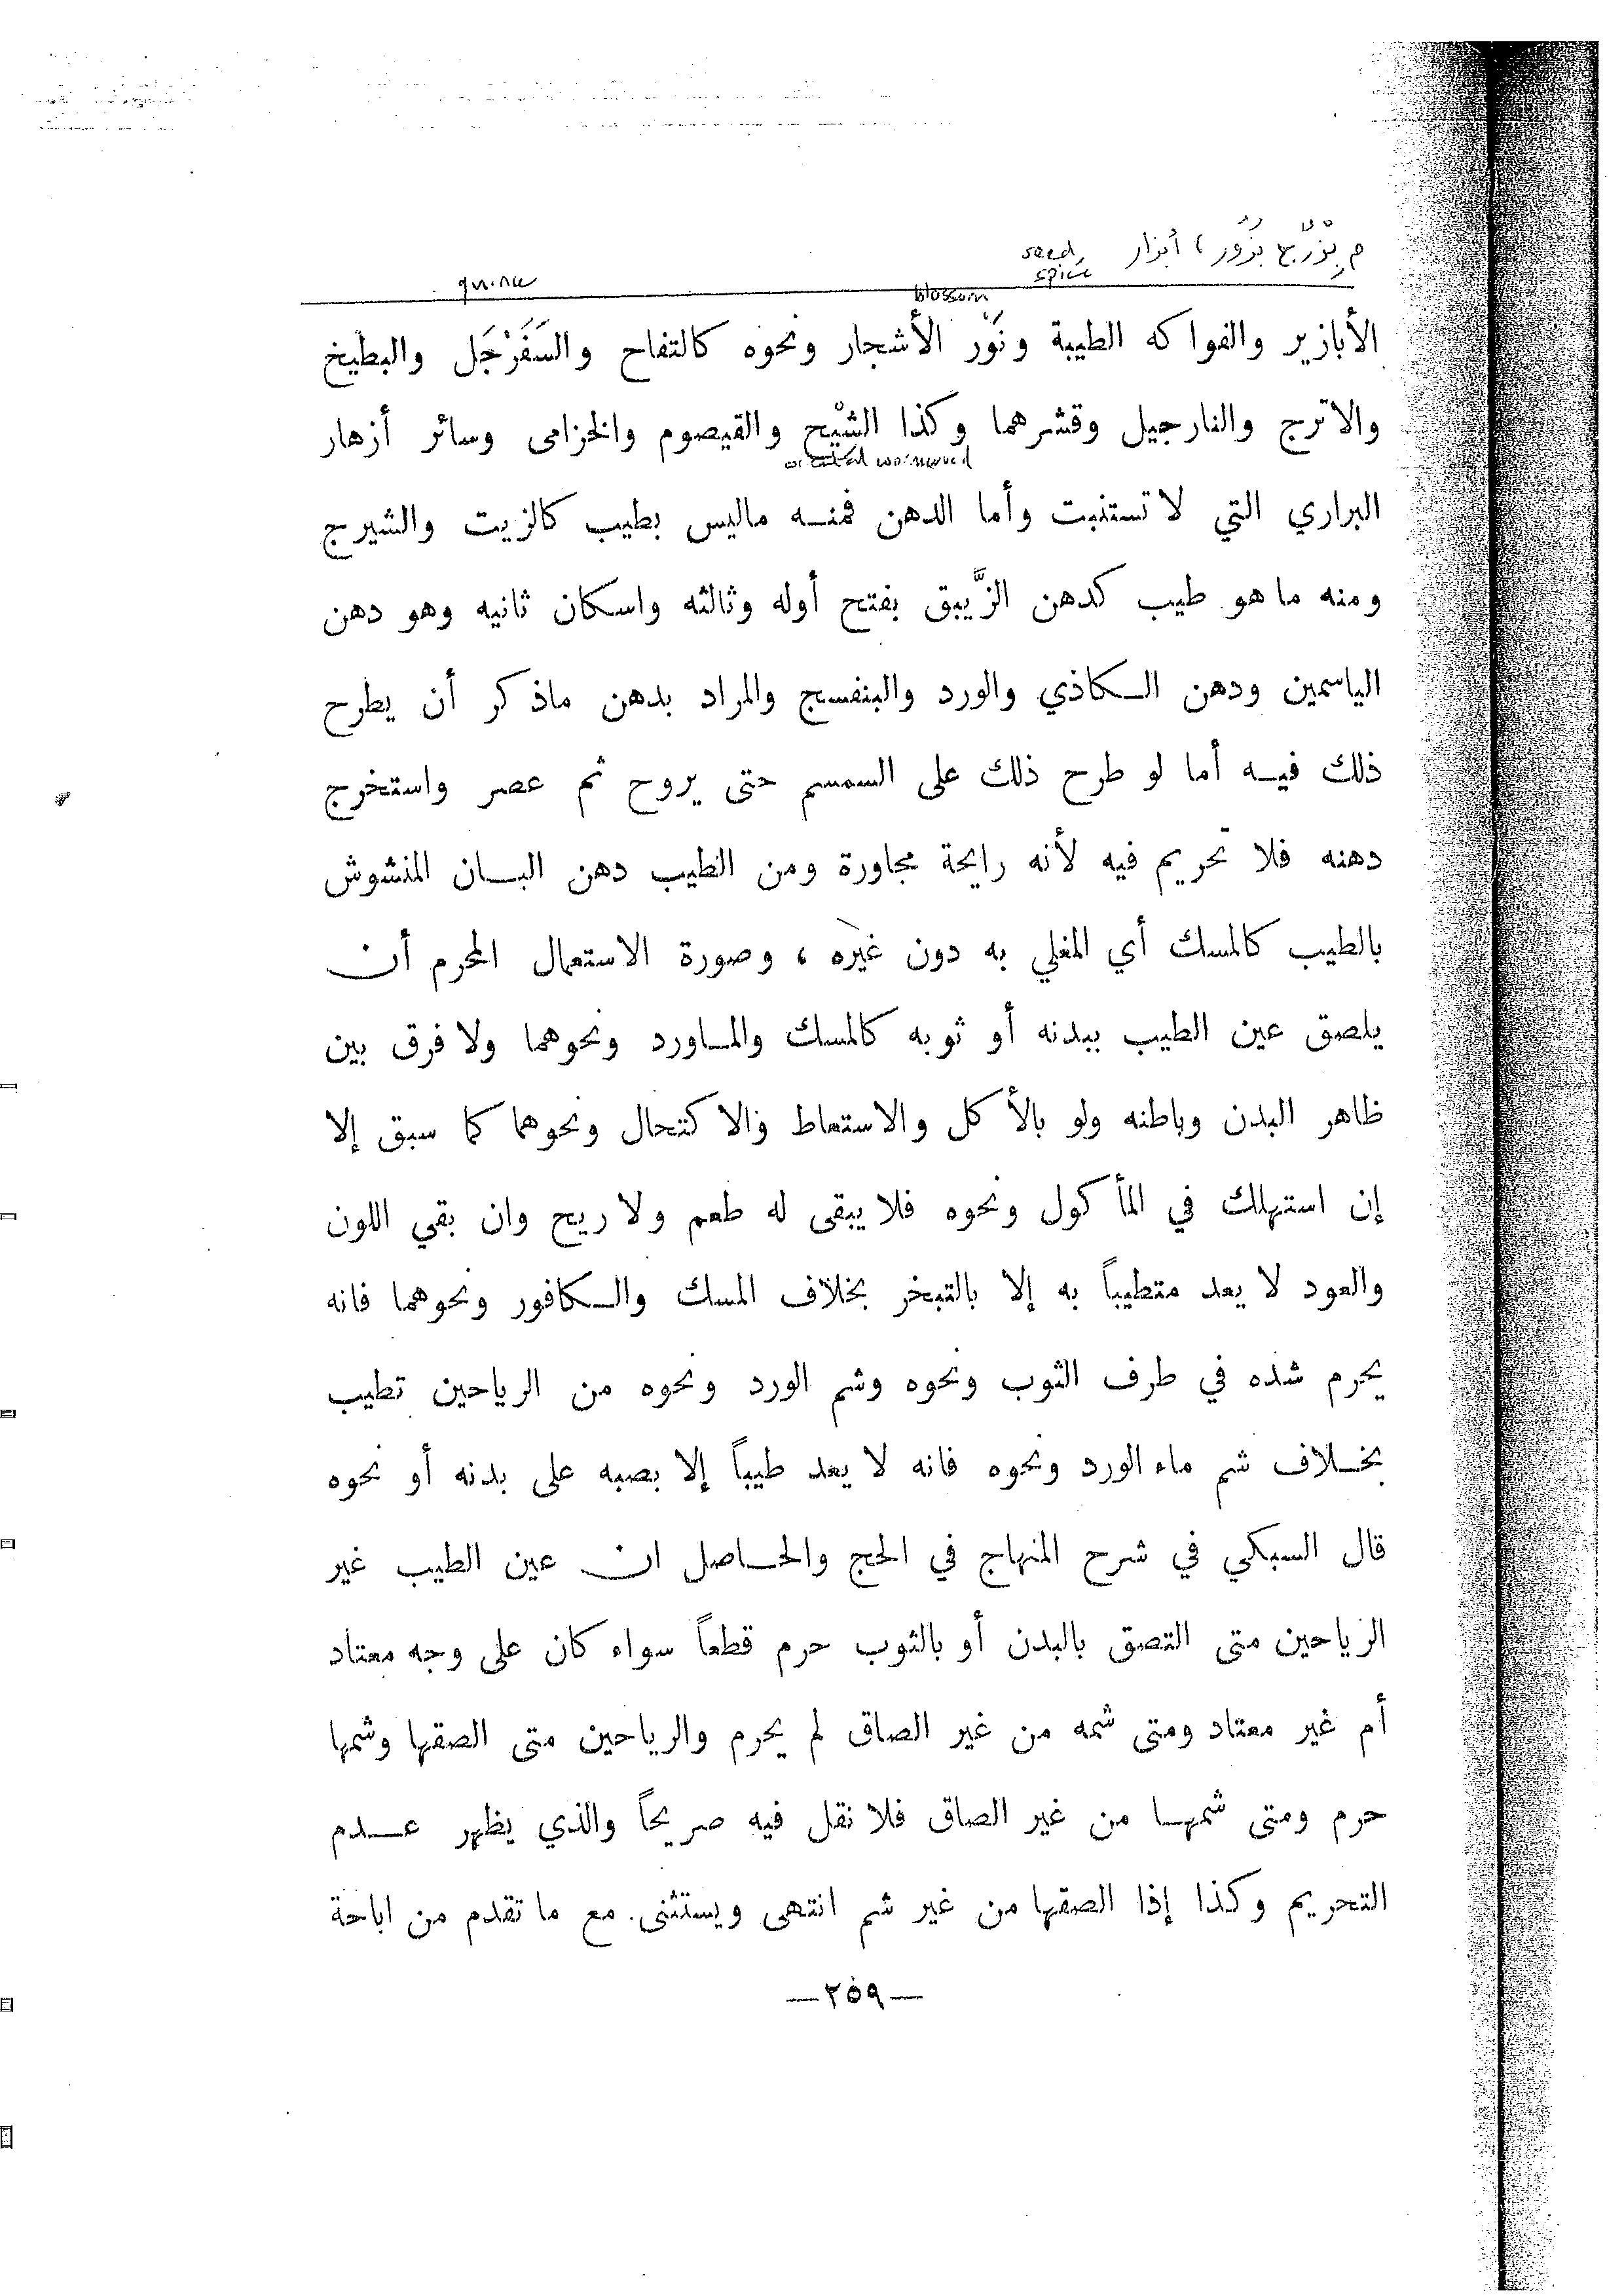 م بِزْرٌ ج بُزُور ، أبزار seed, spice
quince
blossom
الأبازير والفواكه الطيبة ونَوْر الأشجار ونحوه كالتفاح والسَفَرْجَل والبطيخ
والاترج والنارجيل وقشرهما وكذا الشيْح والقيصوم والخزامى وسائر أزهار
oriental wormwood
البراري التي لا تستنبت وأما الدهن فمنه ماليس بطيب كالزيت والشيرج
ومنه ما هو طيب كدهن الزَّيبق بفتح أوله وثالثه واسكان ثانيه وهو دهن
الياسمين ودهن الكاذي والورد والبنفسج والمراد بدهن ماذكر أن يطرح
ذلك فيه أما لو طرح ذلك على السمسم حتى يروح ثم عصر واستخرج
دهنه فلا تحريم فيه لأنه رايحة مجاورة ومن الطيب دهن البان المنشوش
بالطيب كالمسك أي المغلي به دون غيره ، وصورة الاستعمال المحرم أن
يلصق عين الطيب ببدنه أو ثوبه كالمسك والماورد ونحوهما ولا فرق بين
ظاهر البدن وباطنه ولو بالأكل والاستعاط والاكتحال ونحوهما كما سبق إلا
إن استهلك في المأكول ونحوه فلا يبقى له طعم ولا ريح وان بقي اللون
والعود لا يعد متطيباً به إلا بالتبخر بخلاف المسك والكافور ونحوهما فانه
يحرم شده في طرف الثوب ونحوه وشم الورد ونحوه من الرياحين تطيب
بخلاف شم ماء الورد ونحوه فانه لا يعد طيباً إلا بصبه على بدنه أو نحوه
قال السبكي في شرح المنهاج في الحج والحاصل ان عين الطيب غير
الرياحين متى التصق بالبدن أو بالثوب حرم قطعاً سواء كان على وجه معتاد
أم غير معتاد ومتى شمه من غير الصاق لم يحرم والرياحين متى الصقها وشمها
حرم ومتى شمها من غير الصاق فلا نقل فيه صريحاً والذي يظهر عدم
التحريم وكذا إذا الصقها من غير شم انتهى ويستثنى مع ما تقدم من اباحة
—٢٥٩—